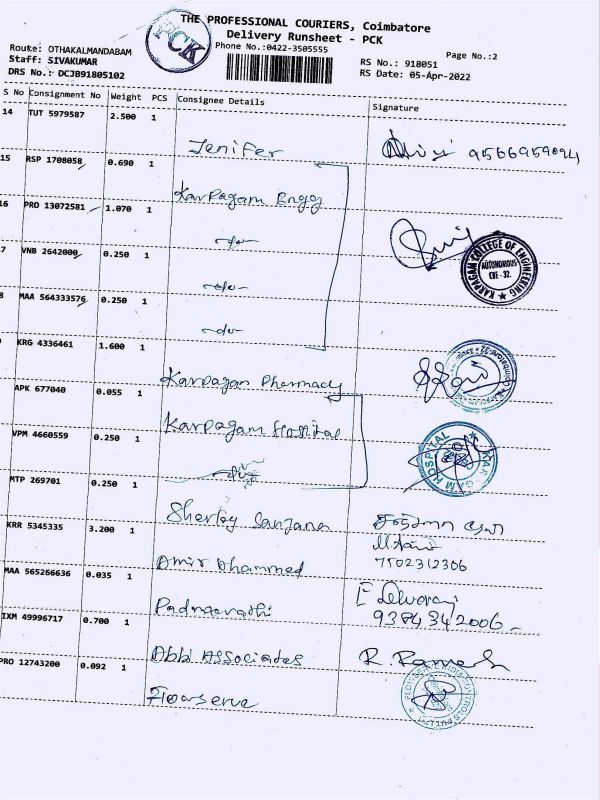 THE PROFESSIONAL COURIERS, Coimbatore
Delivery Runsheet - PCK
PCK
Phone No.:0422-3505555
Page No.:2
Route: OTHAKALMANDABAM
Staff: SIVAKUMAR
DRS No.: DCJB91805102
RS No.: 918051
RS Date: 05-Apr-2022
S No Consignment No Weight PCS Consignee Details Signature
14 TUT 5979587 2.500 1
Jenifer
15 RSP 1708058 0.690 1
Karpagam Engg
16 PRO 13072581 1.070 1
-do-
7 VNB 2642000 0.250 1
KARPAGAM COLLEGE OF ENGINEERING
AUTONOMOUS
CBE - 32.
-do-
8 MAA 564333576 0.250 1
-do-
KRG 4336461 1.600 1
Karpagam Pharmacy
APK 677040 0.055 1
Karpagam Hospital
VPM 4660559 0.250 1
KARPAGAM HOSPITAL
-do-
MTP 269701 0.250 1
Sherley Sanjana
KRR 5345335 3.200 1
7502312306
Amir Ahammed
MAA 565266636 0.035 1
E Devaraj
9384342006
Padmavathi
IXM 49996717 0.700 1
Abbi Associates R. Ramesh
PRO 12743200 0.092 1
Flowserve